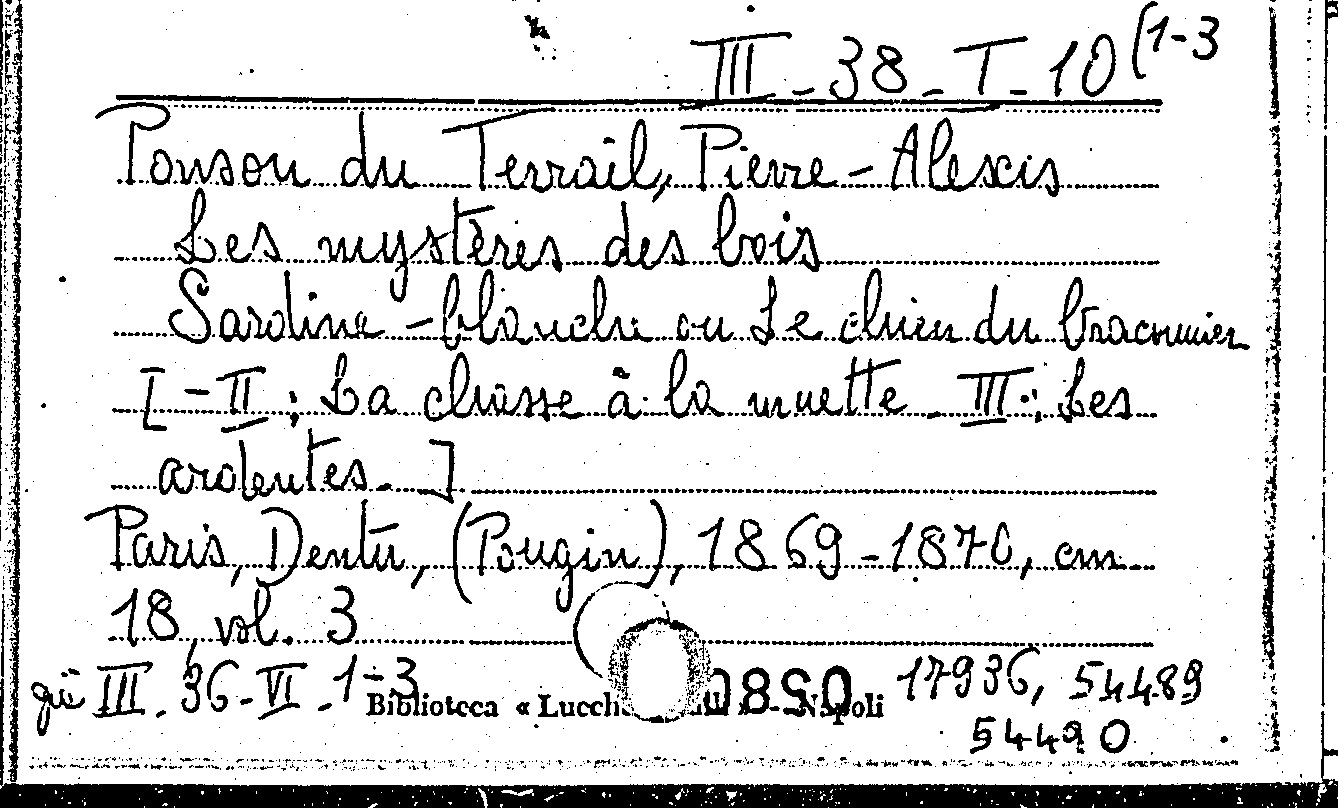 III - 38 - T - 10 (1-3
Ponson du Terrail, Pierre-Alexis
Les mystères des bois
Sardine-blanche ou Le chien du braconnier
[-II; La chasse à la muette - III: Les
ardentes. ]
Paris, Dentu, (Pougin), 1869-1870, cm
18, vol. 3
già III. 36-VI-1-3
Biblioteca « » - Napoli
17936, 54489
54490